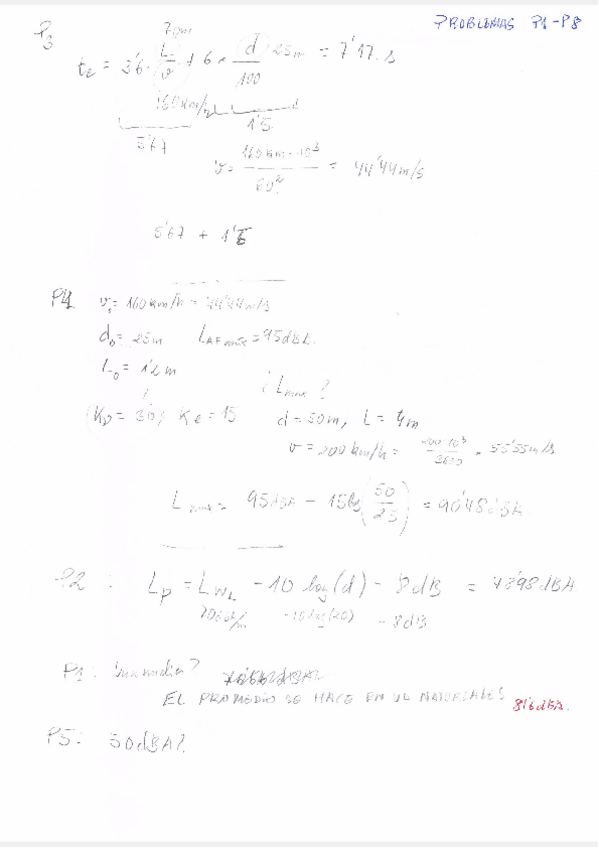 PROBLEMAS P1-P8
P3
70m
te = 3'6 · L/v + 6 · d/100 25m = 7'17 s
160 km/h
5'67 1'5
v = 160 km · 10³ / 60² = 44'44 m/s
5'67 + 1'5
P4 v₀ = 160 km/h = 44'44 m/s
d₀ = 25m LAFmax = 95 dBA.
L₀ = 12m
¿Lmax?
Kv = 30; Ke = 15 d = 50m, L = 4m
v = 200 km/h = 200·10³/3600 = 55'55 m/s
Lmax = 95dBA - 15log(50/25) = 90'48 dBA.
P2 : Lp = LwL - 10 log(d) - 8dB = 48'98 dBA
70 - 10log(20) - 8dB
P1:
EL PROMEDIO SE HACE EN UD NATURALES 81'6 dBA.
P5: 30dBA?